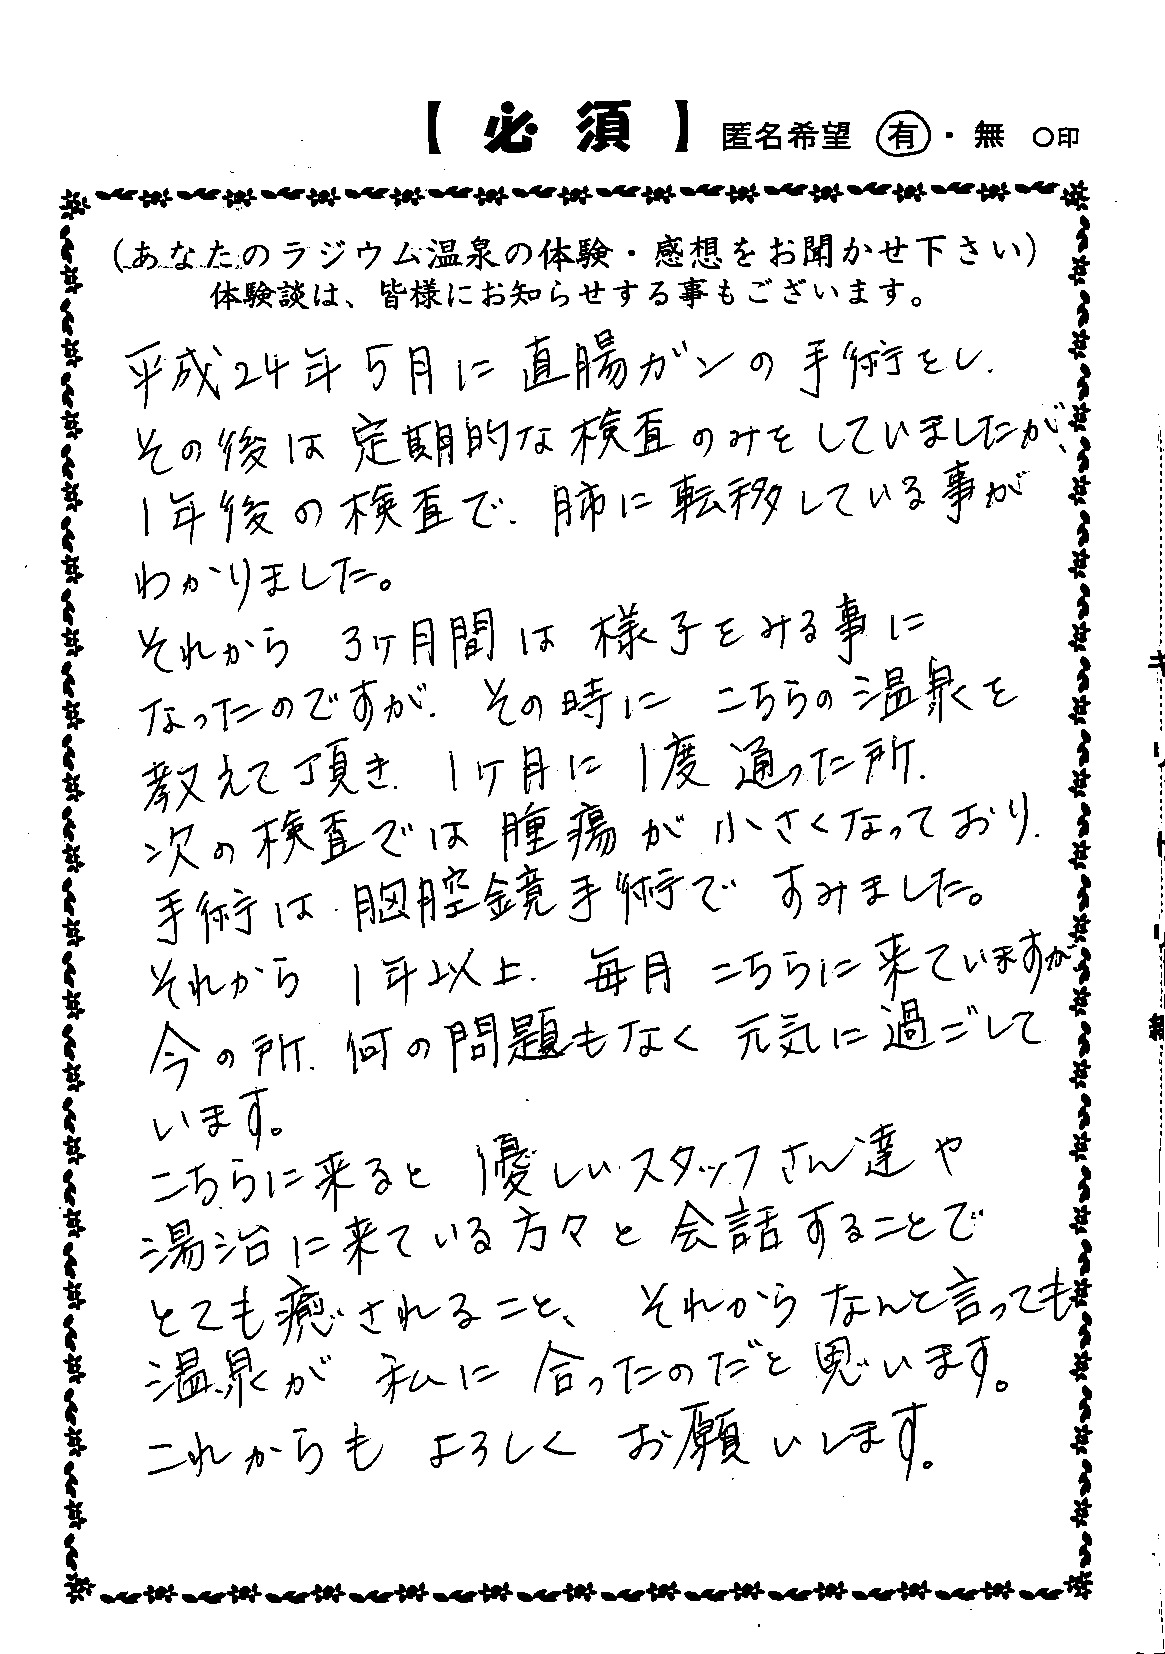 【必須】 匿名希望 有・無 ○印
(あなたのラジウム温泉の体験・感想をお聞かせ下さい)
体験談は、皆様にお知らせする事もございます。
平成24年5月に直腸ガンの手術をし、
その後は定期的な検査のみをしていましたが、
1年後の検査で、肺に転移している事が
わかりました。
それから 3ヶ月間は様子をみる事に
なったのですが、その時に こちらの温泉を
教えて頂き、1ヶ月に1度通った所、
次の検査では腫瘍が小さくなっており、
手術は、胸腔鏡手術で すみました。
それから1年以上、毎月こちらに来ていますが
今の所、何の問題もなく 元気に過ごして
います。
こちらに来ると 優しいスタッフさん達や
湯治に来ている方々と会話することで
とても癒されること、それからなんと言っても
温泉が 私に合ったのだと思います。
これからも よろしく お願いします。
キリトリ線